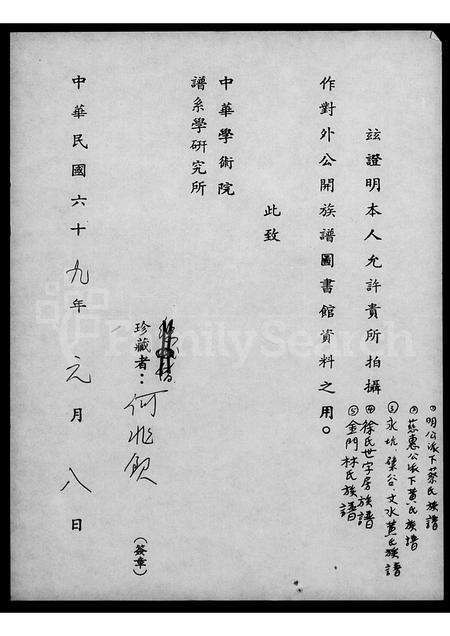 玆證明本人允許貴所拍攝
①明公派下蔡氏族譜
②蔴惠公派下黃氏族譜
③永坑 肇谷.文水黃氏族譜
④徐氏世字房族譜
⑤金門林氏族譜
作對外公開族譜圖書館資料之用。
此致
中華學術院
譜系學研究所
珍藏者：何兆欽
(簽章)
中華民國六十九年元月八日
FamilySearch